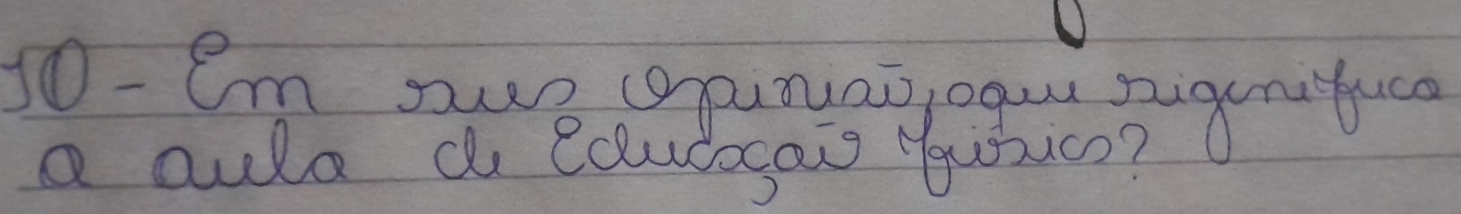 10 - Em sua opinião, oque sigenifica
a aula de Educação física?